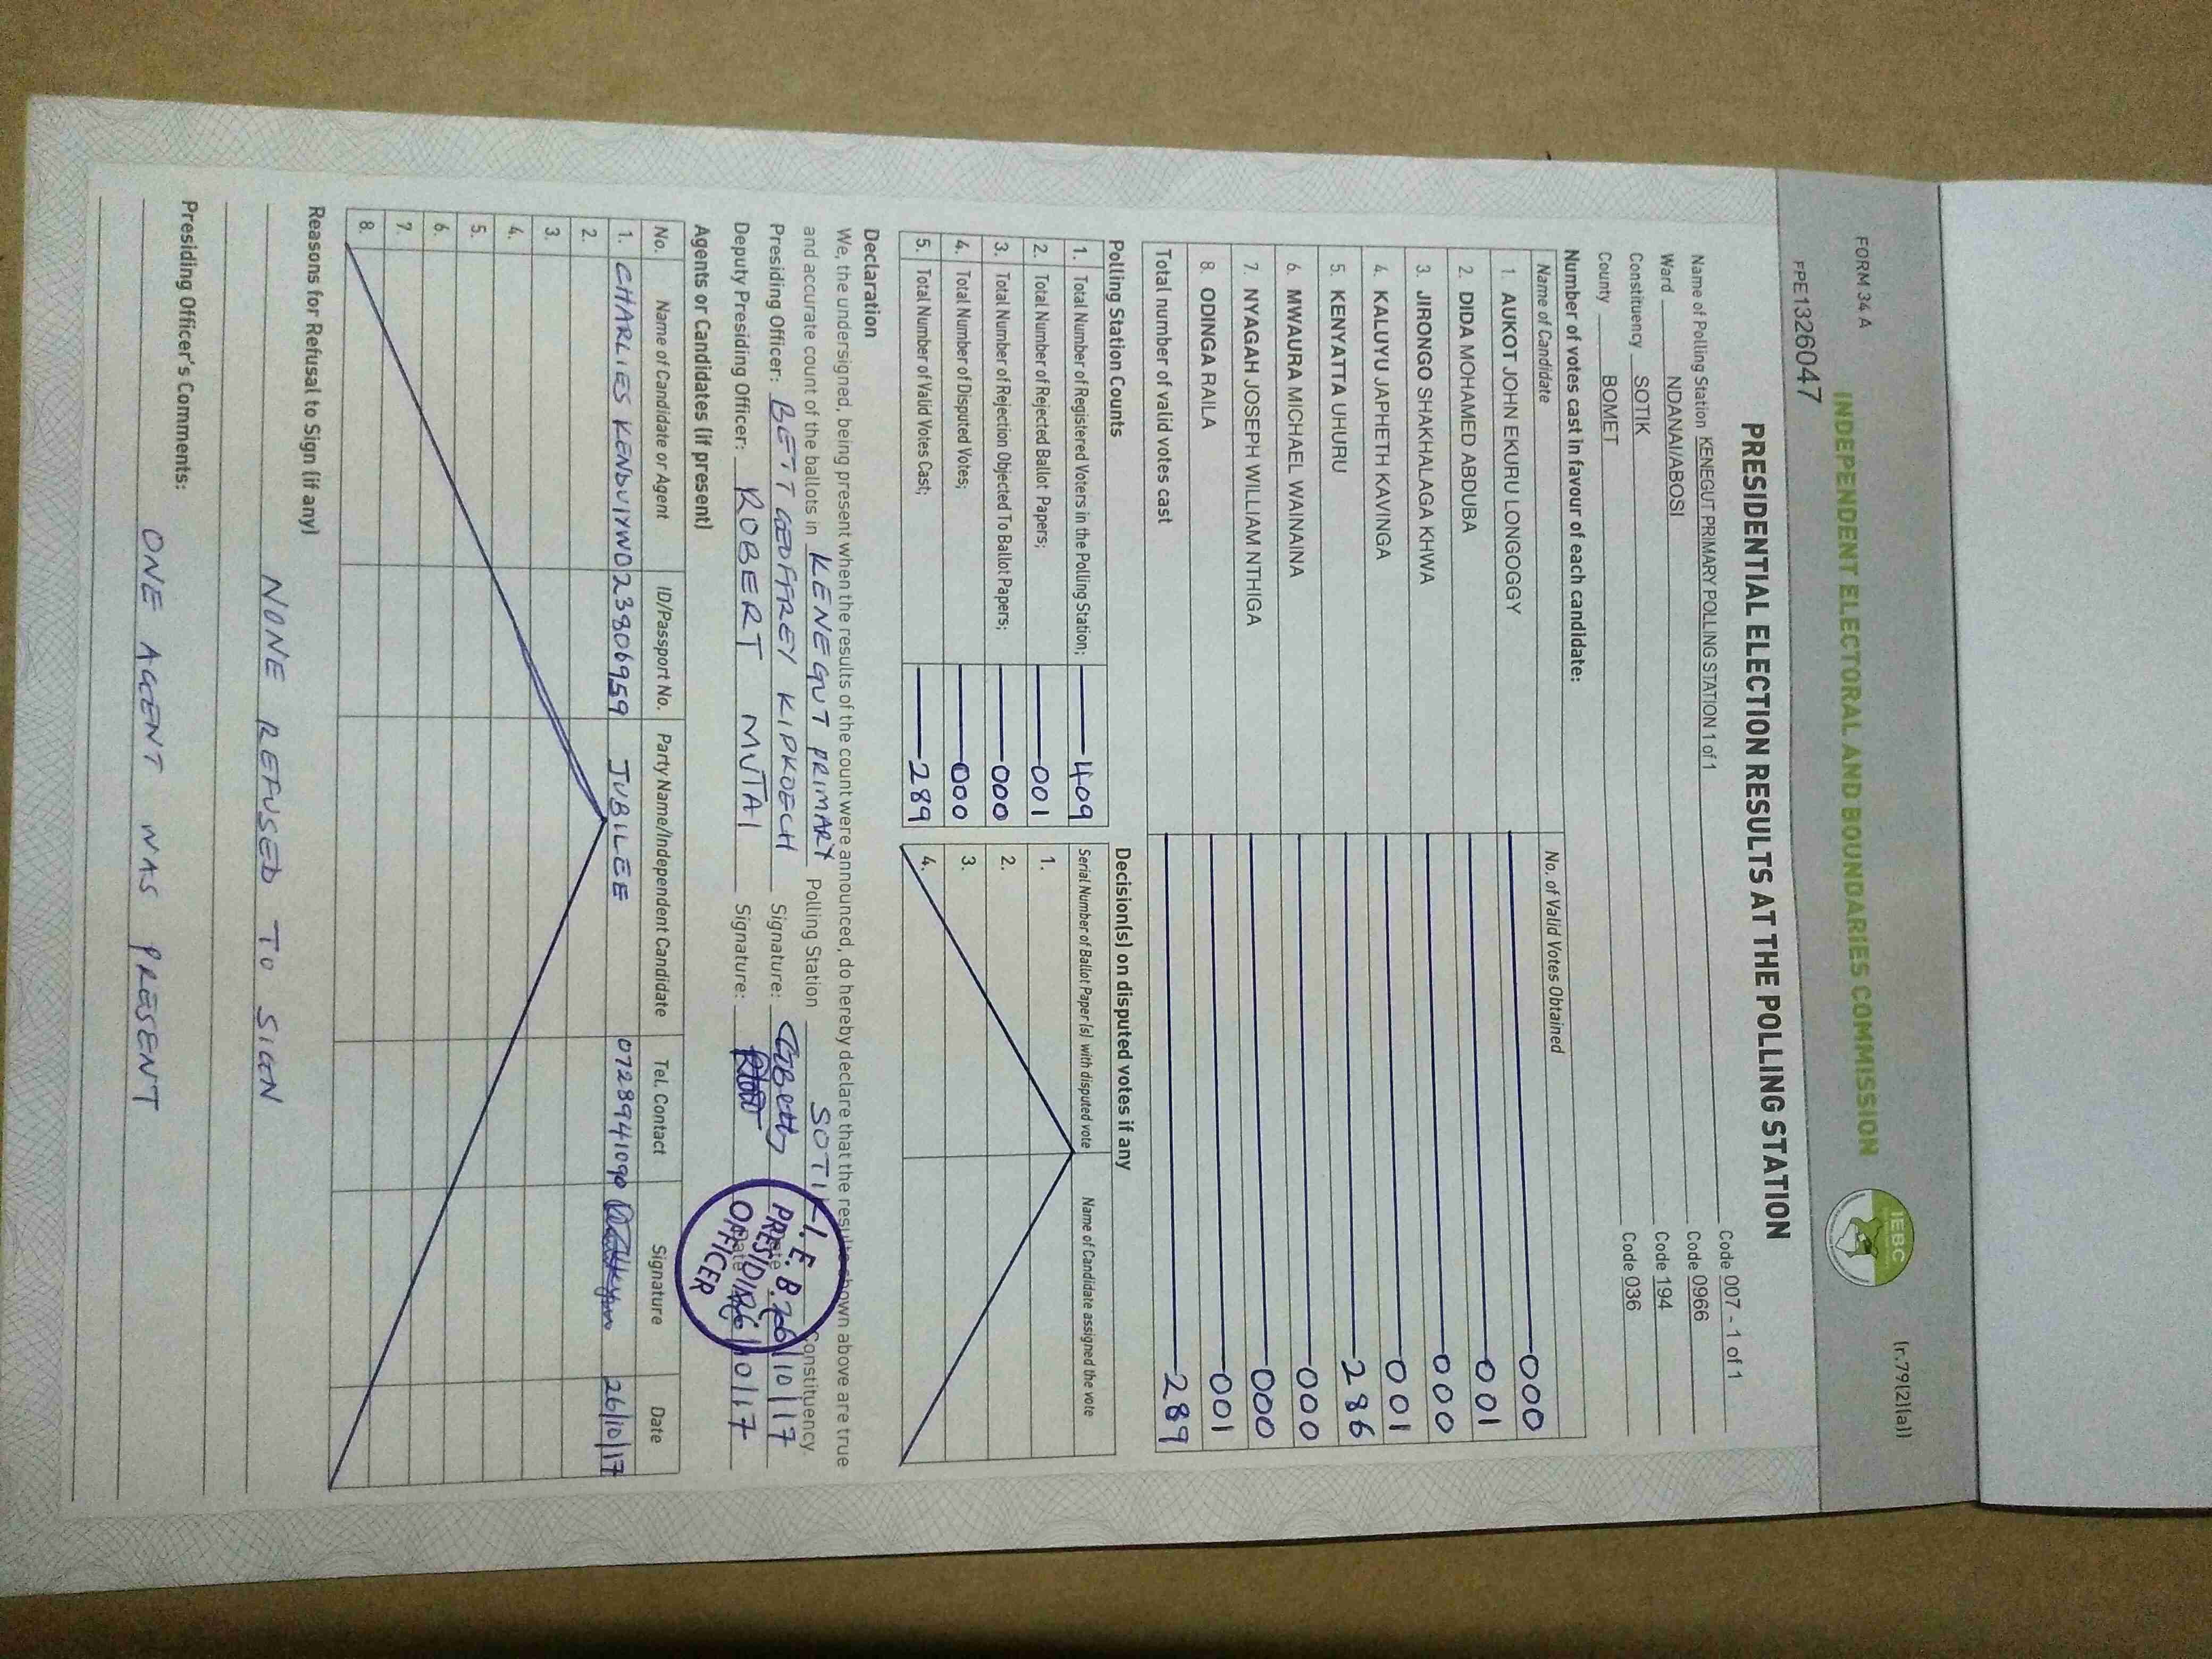 FORM 34 A
(r.79(2)(a))
INDEPENDENT ELECTORAL AND BOUNDARIES COMMISSION
IEBC
FPE1326047
PRESIDENTIAL ELECTION RESULTS AT THE POLLING STATION
Name of Polling Station KENEGUT PRIMARY POLLING STATION 1 of 1 Code 007 - 1 of 1
Ward NDANAI/ABOSI Code 0966
Constituency SOTIK Code 194
County BOMET Code 036
Number of votes cast in favour of each candidate:
Name of Candidate No. of Valid Votes Obtained
1. AUKOT JOHN EKURU LONGOGGY 000
2. DIDA MOHAMED ABDUBA 001
3. JIRONGO SHAKHALAGA KHWA 000
4. KALUYU JAPHETH KAVINGA 001
5. KENYATTA UHURU 286
6. MWAURA MICHAEL WAINAINA 000
7. NYAGAH JOSEPH WILLIAM NTHIGA 000
8. ODINGA RAILA 001
Total number of valid votes cast 289
Polling Station Counts
1. Total Number of Registered Voters in the Polling Station; 409
2. Total Number of Rejected Ballot Papers; 001
3. Total Number of Rejection Objected To Ballot Papers; 000
4. Total Number of Disputed Votes; 000
5. Total Number of Valid Votes Cast; 289
Decision(s) on disputed votes if any
Serial Number of Ballot Paper (s) with disputed vote Name of Candidate assigned the vote
1.
2.
3.
4.
Declaration
We, the undersigned, being present when the results of the count were announced, do hereby declare that the results shown above are true
and accurate count of the ballots in KENEGUT PRIMARY Polling Station SOTIK Constituency.
Presiding Officer: BETT GEOFFREY KIPKOECH Signature: GBett Date 26/10/17
Deputy Presiding Officer: ROBERT MUTAI Signature: Date 26/10/17
I.E.B.C
PRESIDING
OFFICER
Agents or Candidates (if present)
No. Name of Candidate or Agent ID/Passport No. Party Name/Independent Candidate Tel. Contact Signature Date
1. CHARLIES KENDUIYWO 23806959 JUBILEE 0728941090 26/10/17
2.
3.
4.
5.
6.
7.
8.
Reasons for Refusal to Sign (if any)
NONE REFUSED TO SIGN
Presiding Officer's Comments:
ONE AGENT WAS PRESENT